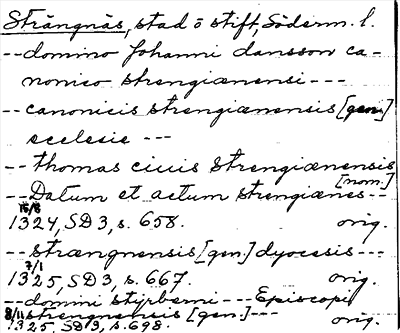 Strängnäs, stad o stift, Söderm. l.
-- domino Johanni dansson ca-
nonico strengianensi ---
-- canonicis strengianensis [gen.]
ecclesie ---
-- thomas ciuis Strengianensis
[nom.]
-- Datum et actum strengianes --
15/8
1324, SD 3, s. 658. orig.
-- strængnensis [gen.] dyocesis ---
7/1
1325, SD 3, s. 667. orig.
-- domini styrberni --- Episcopi
strengnensis [gen.] ---
8/11
1325, SD 3, s. 698. orig.